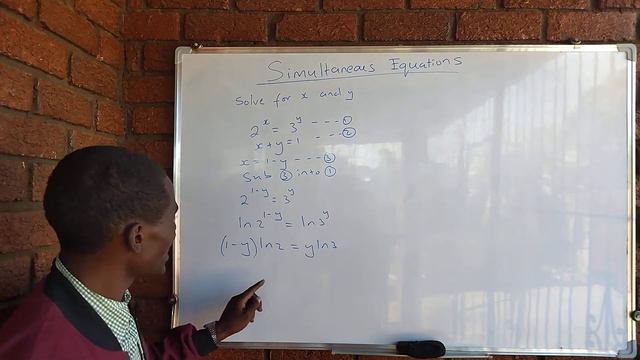 Simultaneous Equations
Solve for x and y
2^x = 3^y --- ①
x+y=1 --- ②
x = 1-y --- ③
Sub ③ into ①
2^{1-y} = 3^y
ln2^{1-y} = ln3^y
(1-y)ln2 = yln3